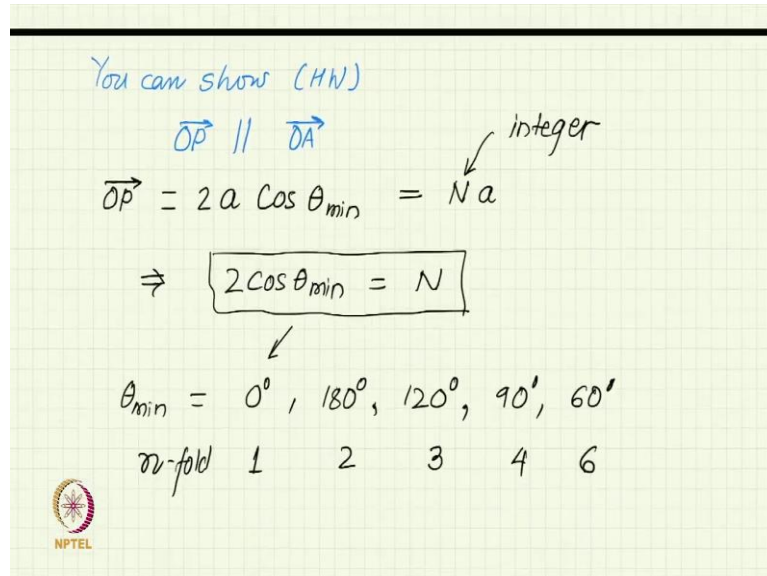 You can show (HW)
→OP || →OA
integer
→OP = 2a Cos θmin = Na
⇒ 2 Cos θmin = N
θmin = 0⁰, 180⁰, 120⁰, 90', 60'
n-fold 1 2 3 4 6
NPTEL